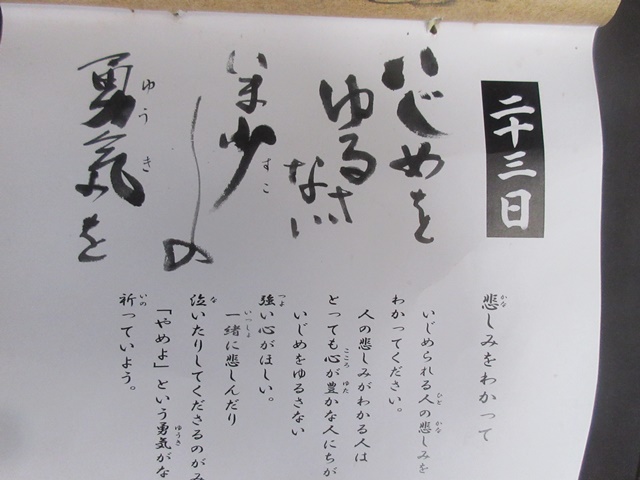 二十三日
いじめを
ゆるさ
ない
いま少
しの
勇気を
悲しみをわかって
いじめられる人の悲しみを
わかってください。
人の悲しみがわかる人は
とっても心が豊かな人にちが
いじめをゆるさない
強い心がほしい。
一緒に悲しんだり
泣いたりしてくださるのがみ
「やめよ」という勇気がな
祈っていよう。